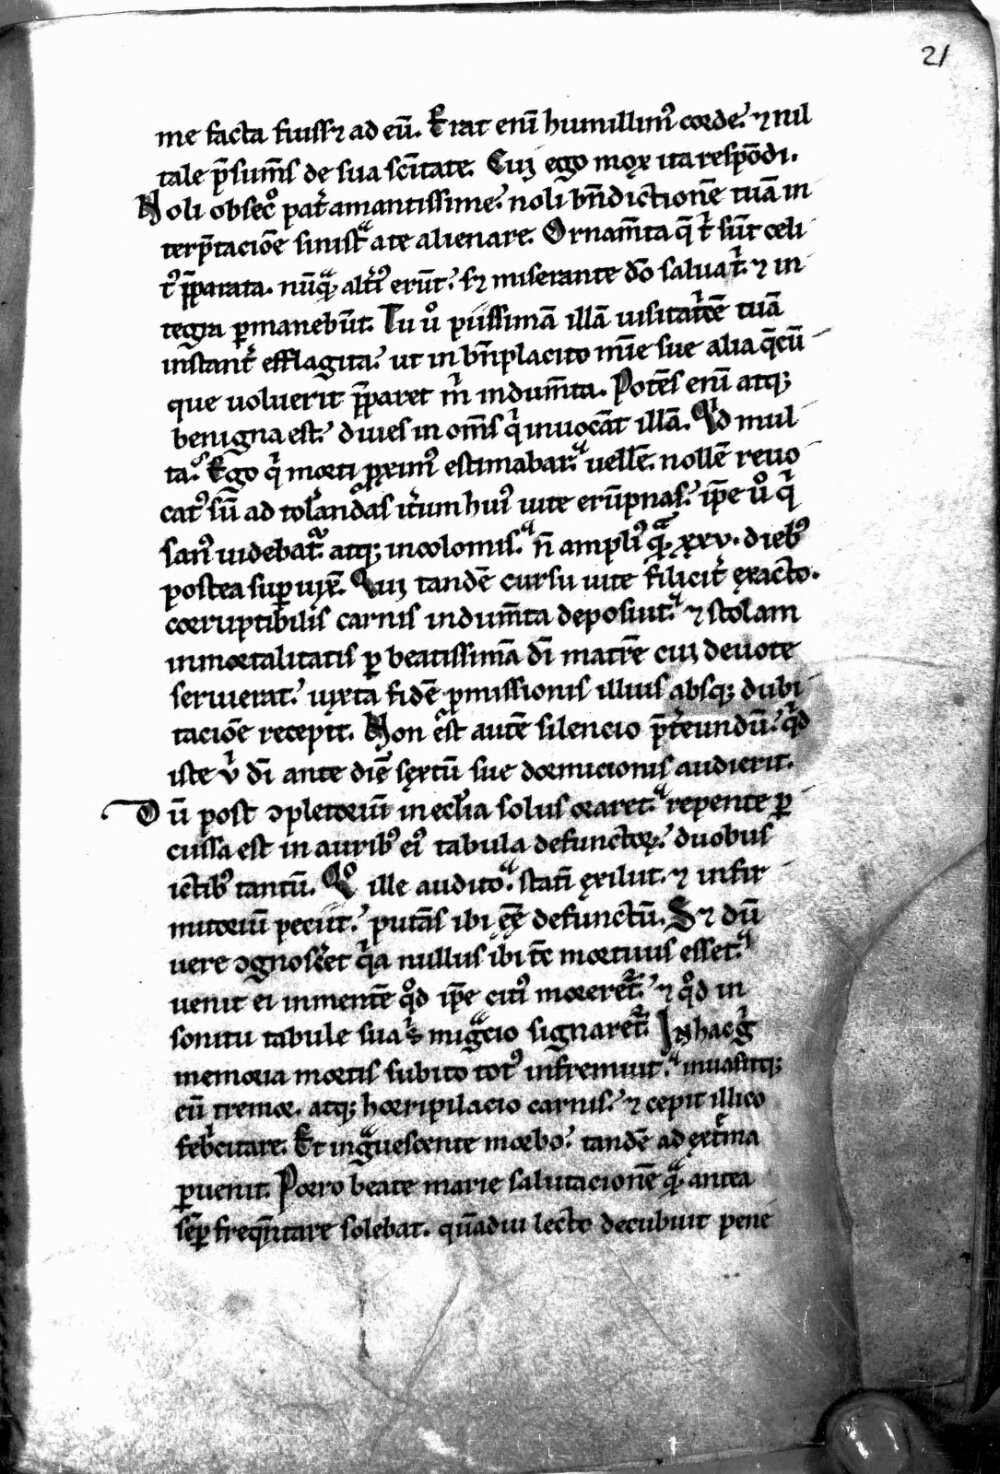 21
me facta fuiss⁊ ad eū. Erat enī humillimꝰ corde. ⁊ nil
tale p̄sumēs de sua sc̄itate. Cui ego mox ita respōdi.
Noli obsecͦ pat̄ amantissime. noli bn̄dictionē tuā in
terp̄tacioē sinistͣ a te alienare. Ornam̄ta q̄ tͥ sūt celi
tꝰ p̄parata. nūqͣ altīꝰ erūt. sꝫ miserante dō saluat̄. ⁊ in
tegra ꝑmanebūt. Tu uͦ piissimā illā uisitat̄cē tuā
instant̄ efflagita. ut in bn̄placito mīe sue alia q̄cū
que uoluerit p̄paret mͥ indum̄ta. Potēs enī atqꝫ
benigna est. diues in om̄s qͥ inuocāt illā. Qͥd mul
ta. Ego qͥ morti ꝓximꝰ estimabar. uellē. nollē reuo
catꝰ sū ad tol̄andas it̄um huiꝰ uite erūpnas. ip̄e uͦ qͥ
sanꝰ uidebat̄. atqꝫ incolomis. n̄ ampliꝰ qͣ xxv. diebꝰ
postea suꝑuix̄. Qui tandē cursu uite filicit̄ exacto.
corruptibilis carnis indum̄ta deposuit. ⁊ stolam
inmortalitatis ꝑ beatissimā dī matrē cui deuote
seruierat. iuxta fidē ꝓmissionis illius absqꝫ dubi
tacioē recepit. Non est autē silencio p̄t̄eundū. qͥd
iste v̄ dī ante diē sextū sue dormicionis audierit.
Dū post ꝯpletoriū in ecl̄ia solus oraret. repente ꝑ
cussa est in auribꝰ eiꝰ tabula defunctoꝝ. duobus
ictibꝰ tantū. Qͦ ille audito. stati exiluit. ⁊ infir
mitoriū peciit. putās ibi eē̄ defunctū. S⁊ dū
uere ꝯgnosc̄et qͥa nullus ibi tc̄ mortuus esset.
uenit ei in mentē qͦd ip̄e citꝰ moreret̄. ⁊ qͦd in
sonitu tabule sua migͣcio signaret̄. In hac gͥ
memoria mortis subito totꝰ infremuit. inuasitqꝫ
eū tremor. atqꝫ horripilacio carnis. ⁊ cepit illico
feb̄citare. Et ingͣuescente morbo. tandē ad ext̄ma
ꝑuenit. Porro beate marie salutacionē qͣ antea
sēꝑ freq̄ntare solebat. qͣmdiu lecto decubuit pene